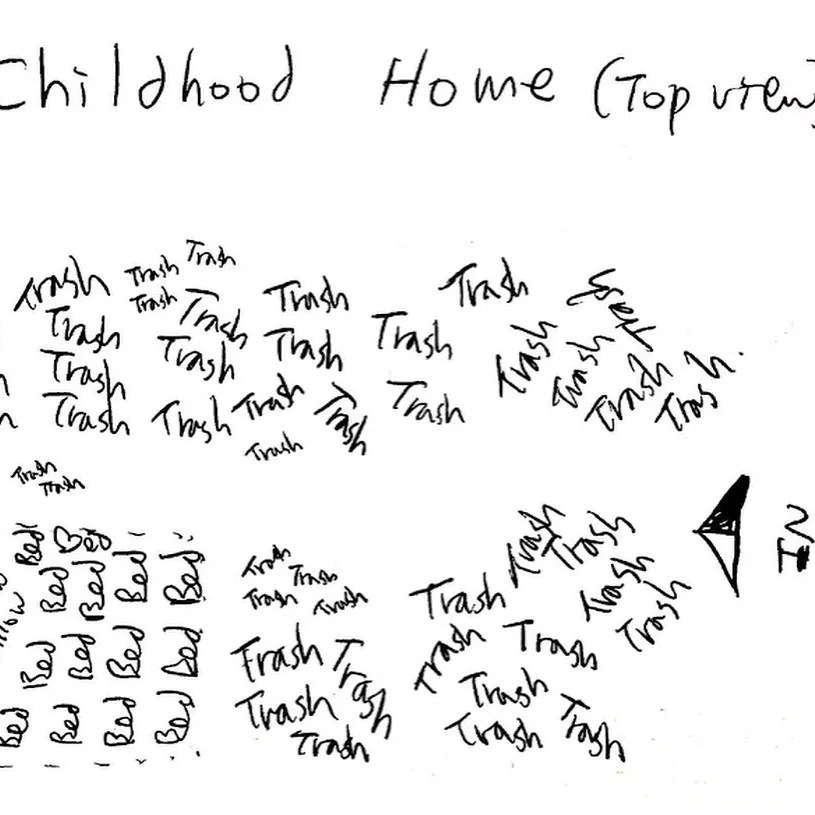 Childhood Home (Top view)
Trash Trash Trash Trash Trash
Trash Trash Trash
Trash Trash Trash Trash Trash
Trash Trash Trash Trash
Trash Trash Trash Trash Trash Trash
Trash
Trash
Trash
IN
Trash Trash
Bed Trash
Bed Bed Bed Bed Trash Trash Trash
Trash Trash Trash Trash
Bed Bed Bed Bed Trash Trash Trash Trash
Bed Bed Bed Bed Trash Trash
Trash Trash Trash